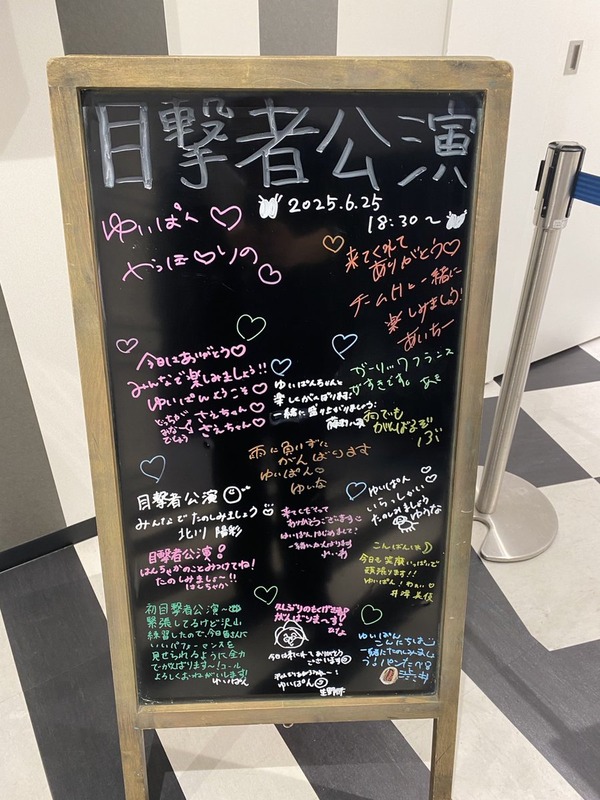 目撃者公演
2025.6.25
18:30〜
ゆいぱん♡
やっほ♡りの♡
来てくれて
ありがとう♡
チームHと一緒に
楽しみましょう!
あいちー
今日はありがとう♡
みんなで楽しみましょう!!
ゆいぱんようこそ♡
さえちゃん♡
さえちゃん♡
ゆいぱんちゃんと
楽しくがんばります!
一緒に盛り上がりましょう!
がすきです。
雨でも
がんばるぞ
雨に負けずに
がんばります
ゆいぱん♡
ゆいな
目撃者公演
みんなでたのしみましょう
北川 陽彩
ゆいぱん、
いらっしゃい
たのしみましょう
ゆうな
来てくださって
ありがとうございます
ゆいぱんはじめまして!
一緒にがんばります
目撃者公演!
はんちゃかのことみつけてね!
たのしみましょ〜!!
はんちゃか
こんばんは
今日も笑顔いっぱいで
頑張ります!!
ゆいぱん!
井澤美優
初目撃者公演〜
緊張してるけど沢山
練習したので、今日皆さんに
いいパフォーマンスを
見せられるように全力
でがんばります〜!コール
よろしくおねがいします!
ゆいぱん
久しぶりのもくげき公演
がんばりま〜す!
今日は来てくれてありがとう
ございます
ゆいぱん
生野
ゆいぱん
こんにちは
一緒にたのしみましょ
う!パンたべる